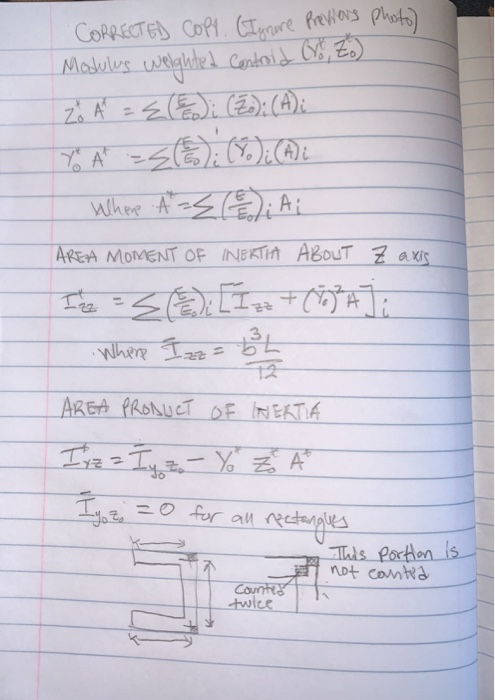 CORRECTED COPY. (Ignore Previous Photo)
Modulus weighted Centroid (Y₀*, Z₀*)
Z₀* A* = Σ(E/E₀)ᵢ (Z̄₀)ᵢ (A)ᵢ
Y₀* A* = Σ(E/E₀)ᵢ (Ȳ₀)ᵢ (A)ᵢ
Where A* = Σ(E/E₀)ᵢ Aᵢ
AREA MOMENT OF INERTIA ABOUT Z axis
I*zz = Σ(E/E₀)ᵢ [Īzz + (Ȳ₀)² A]ᵢ
Where Īzz = b³L/12
AREA PRODUCT OF INERTIA
I*yz = Īy₀z₀ - Y₀* Z₀* A*
Īy₀z₀ = 0 for all rectangles
This Portion is
not counted
Counted
twice